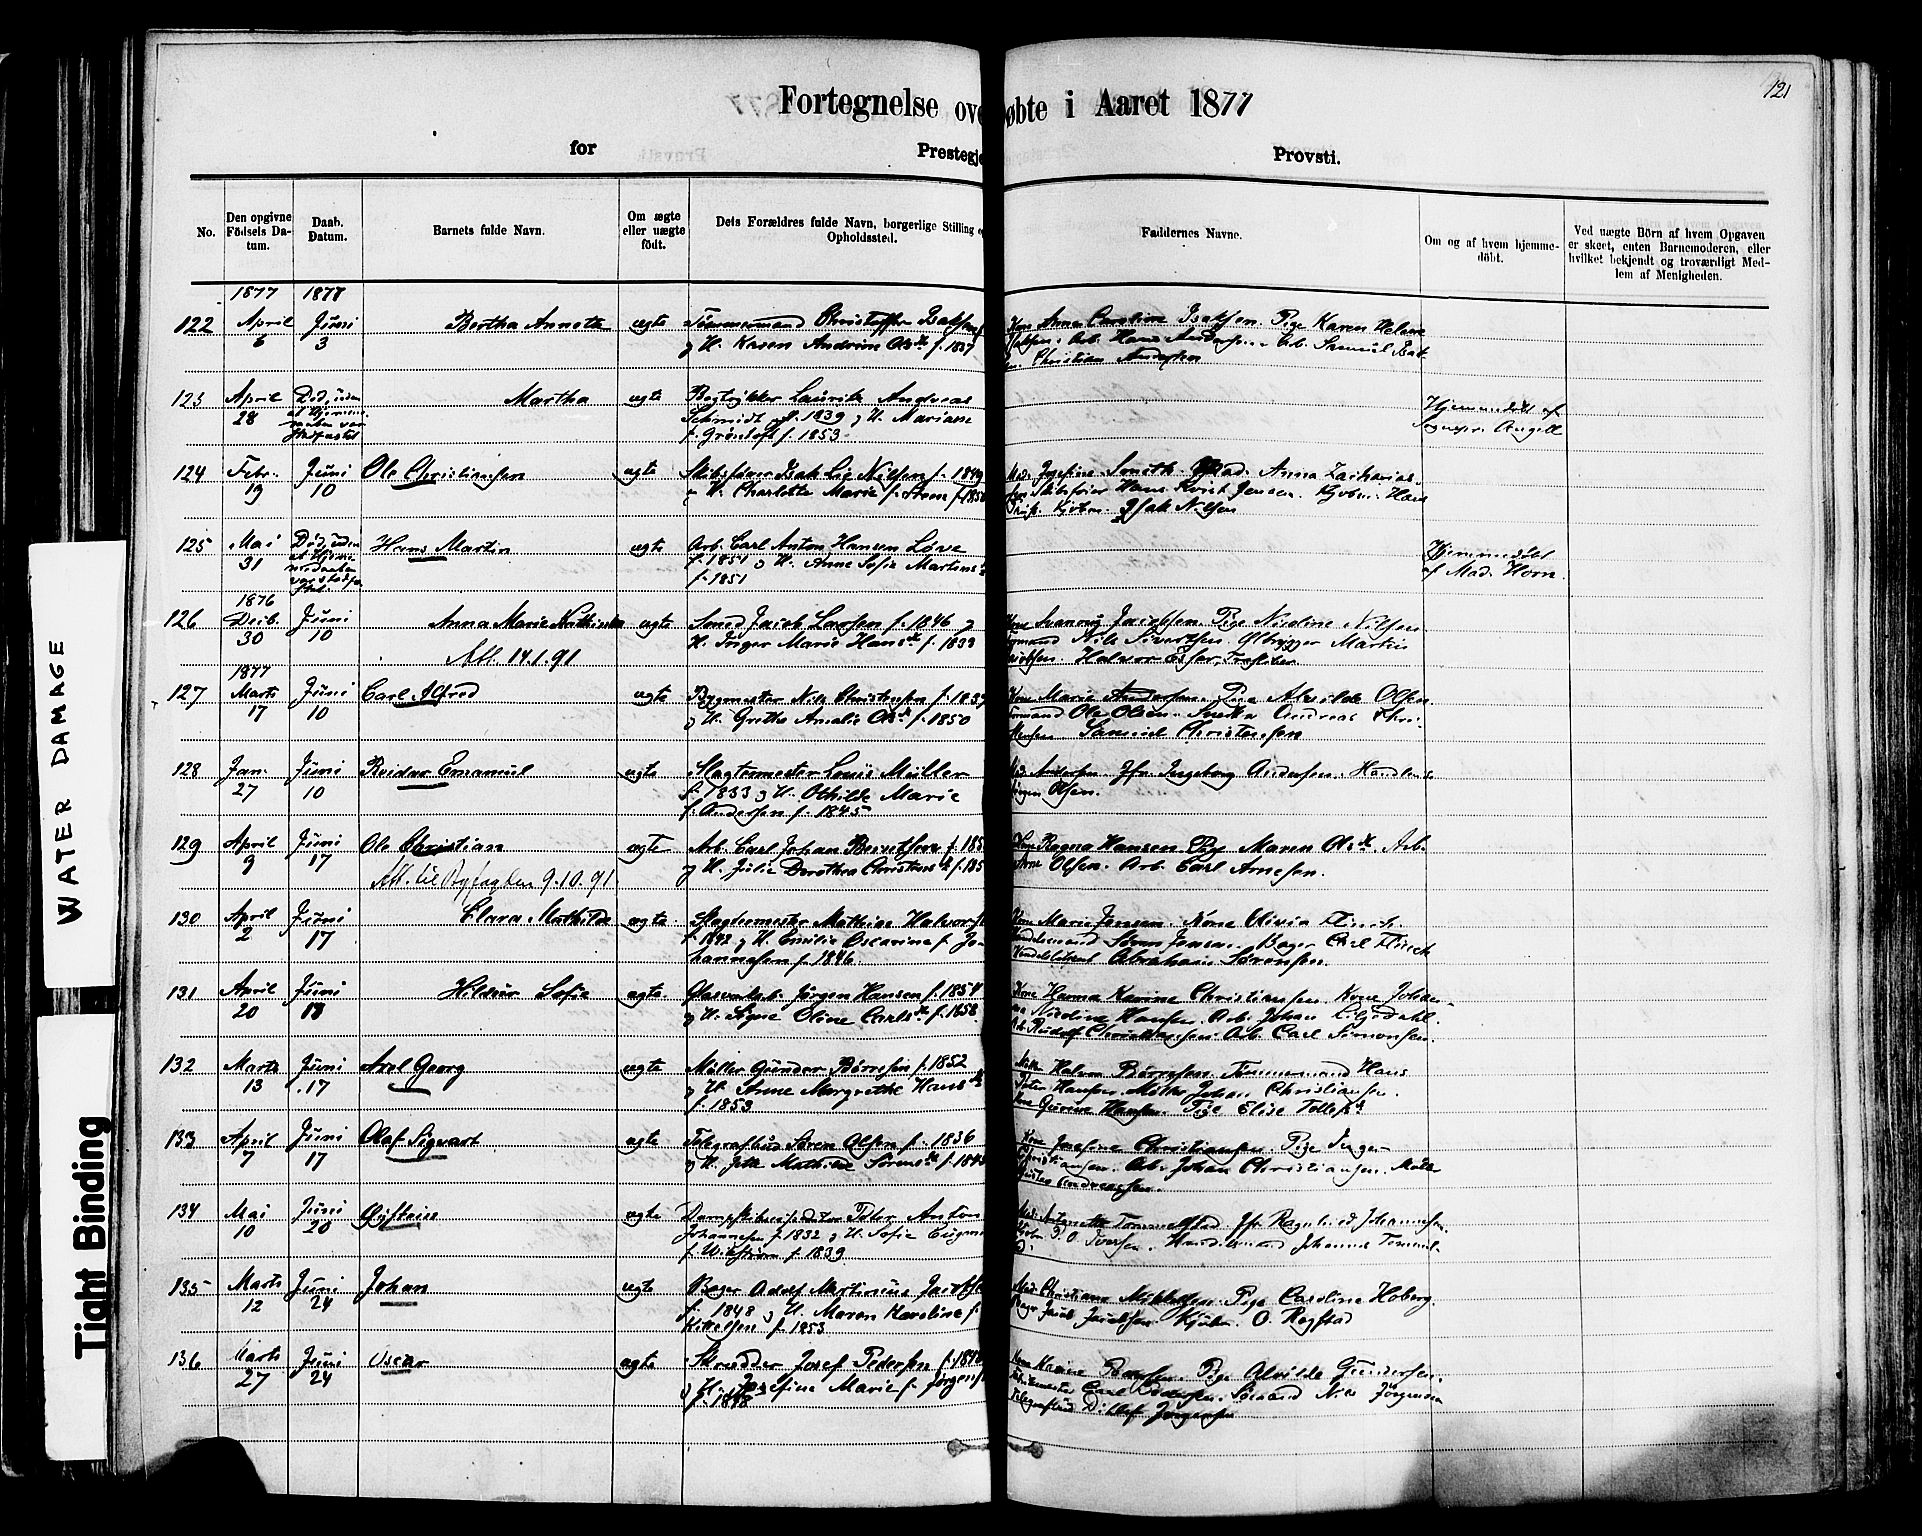 121
Fortegnelse ove øbte i Aaret 1877
for Prestegje Provsti.
No.
Den opgivne Fødsels Datum.
Daab. Datum.
Barnets fulde Navn.
Om ægte eller uægte født.
Dets Forældres fulde Navn, borgerlige Stilling o
Opholdssted.
Faddernes Navne.
Om og af hvem hjemmedöbt.
Ved uægte Börn af hvem Opgaven
er skeet, enten Barnemoderen, eller
hvilket bekjendt og troværdigt Med-
lem af Menigheden.
1877 1877
122 April 6 Juni 3 Bertha Annette ægte Tömmermand Christoffer Isaksen
og H. Karen Andrine Olsd. f. 1837
Kone Anna Caroline Isaksen. Pige Karen Helene
Isaksen. Arb. Hans Andersen. Arb. Samuel Isak-
sen. Christian Andersen
123 April 28 Död, uden Martha ægte Laurits Andreas
Schmidt f. 1839 og H. Mariane
f. Grøntoft f. 1853.
Hjemmedöbt af
Sognepr. Angell
124 Febr. 19 Juni 10 Ole Christiansen ægte Skibsfører Isak Lie Nilsen f. 1849
og H. Charlotte Marie f. 1850
Mad. Josefine Smith. Mad. Anna Zacharias-
sen Skibsfører Hans Kvist Jensen. Kjøbm. Hans
Kjøbm. Isak Nilsen
125 Mai 31 Död, uden Hans Martin ægte Arb. Carl Anton Hansen Løve
f. 1851 og H. Anne Sofie Martinsd.
f. 1851
Hjemmedöbt
af Mad. Horn.
1876
126 Decb. 30 Juni 10 Anna Marie Mathinka ægte Smed Jacob Larsen f. 1846 og
H. Inger Marie Hansd. f. 1833
Att. 14.1.91
Jacobsen. Pige Nicoline Nilsen
Nils Sivertsen. Martin
Jacobsen. Halvor
1877
127 Marts 17 Juni 10 Carl Alfred ægte Bygmester Nils Christensen f. 1837
og H. Grethe Amalie Olsd. f. 1850
Kone Marie Andersen. Pige Alvilde Olsen
Formand Ole Olsen. Snedker Andreas Chri-
stensen Samuel Christensen
128 Jan. 27 Juni 10 Reidar Emanuel ægte Slagtermester Louis Müller
f. 1833 og H. Othilde Marie
f. Andersen f. 1845
Mad. Andersen. Jfr. Ingeborg Andersen. Handlende
Jörgen Olsen.
129 April 9 Juni 17 Ole Christian ægte Arb. Carl Johan Berntsen f. 185
og H. Julie Dorothea Christensd. f. 185
Att. til 9.10.91.
Kone Ragna Hansen Pige Maren Olsd. Arb.
Arne Olsen. Arb. Carl Arnesen.
130 April 2 Juni 17 Clara Mathilde ægte Slagtermester Mathias Halvorsen
f. 1842 og H. Emilie Oscarine f. Jo-
hannesen f. 1846.
Kone Marie Jensen. Kone Olivia Flinch
Handelsmand Sören Jensen. Bager Carl Flinch
Abraham Sörensen.
131 April 20 Juni 18 Hildur Sofie ægte. Glasverksarb. Jörgen Hansen f. 1854
og H. Signe Oline Carlsd. f. 1858.
Kone Hanna Karine Christiansen Kone Johan-
ne Nicoline Hansen. Arb. Johan Liljedahl.
Arb. Rudolf Christiansen. Arb. Carl Simonsen.
132 Marts 13 Juni 17 Axel Georg ægte Möller Gunder Börresen f. 1852
og H. Anne Margrethe Hansd.
f. 1853
Halvor Börresen. Tömmermand Hans
Peter Hansen. Johan Christiansen.
Kone Gurine Hansen. Pige Elise Tollefsd.
133 April 7 Juni 17 Olaf Sigvart ægte Telegrafbud Sören Olsen f. 1836
og H. Jette Mathilde Sörensd. f. 1843
Kone Josefine Christiansen. Pige Inger
Christiansen. Arb. Johan Christiansen.
Andreassen.
134 Mai 10 Juni 20 Øistein ægte Dampskibsexpeditör Peter Anton
Johannesen f. 1832 og H. Sofie Eugenie
f. Wikström f. 1839
Mad. Antonette Tommelstad Jfr. Ragnhild Johannesen
Iversen. Handelsmand Johannes Tommel-
135 Marts 12 Juni 24 Johan ægte Bager Adolf Martinius Jacobsen
f. 1848 og H. Maren Karoline f.
Kittelsen f. 1853
Mad. Christiane Mikkelsen Pige Caroline Hoberg.
Bager Jacob Jacobsen Kjøbm. O. Rogstad
136 Marts 27 Juni 24 Oscar ægte Skrædder Josef Pedersen f. 1848
og H. Josefine Marie f. Jörgensen
f. 1848
Kone Karine Hansen. Pige Alvilde Gundersen.
Carl Pedersen. Sömand Nils Jörgensen
Telegrafbud Ditlef Jörgensen
WATER DAMAGE
Tight Binding